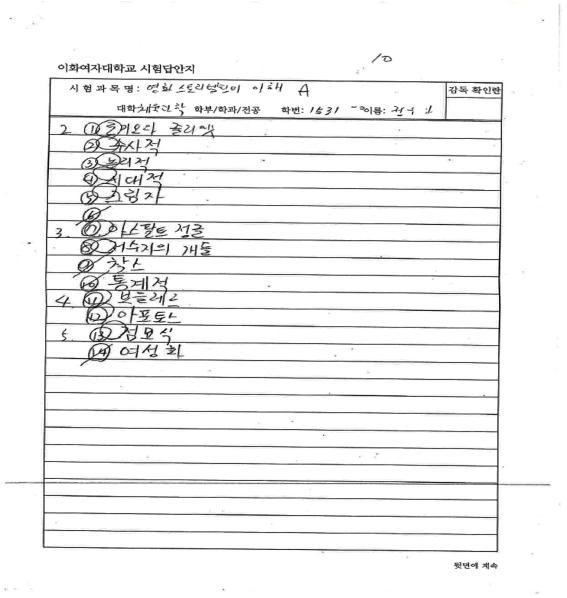 10
이화여자대학교 시험답안지
시 험 과 목 명: 영화 스토리텔링의 이해 A
감독 확인란
대학 학부/학과/전공 학번: 1531 이름:
2 ① 줄리엣
② 수사적
③ 논리적
④ 시대적
⑤ 그림자
⑥
3. ⑦ 아스팔트 정글
⑧ 저수지의 개들
⑨ 착스
⑩ 통계적
4. ⑪ 보들레르
⑫ 아포토스
5. ⑬ 점묘식
⑭ 여성화
뒷면에 계속